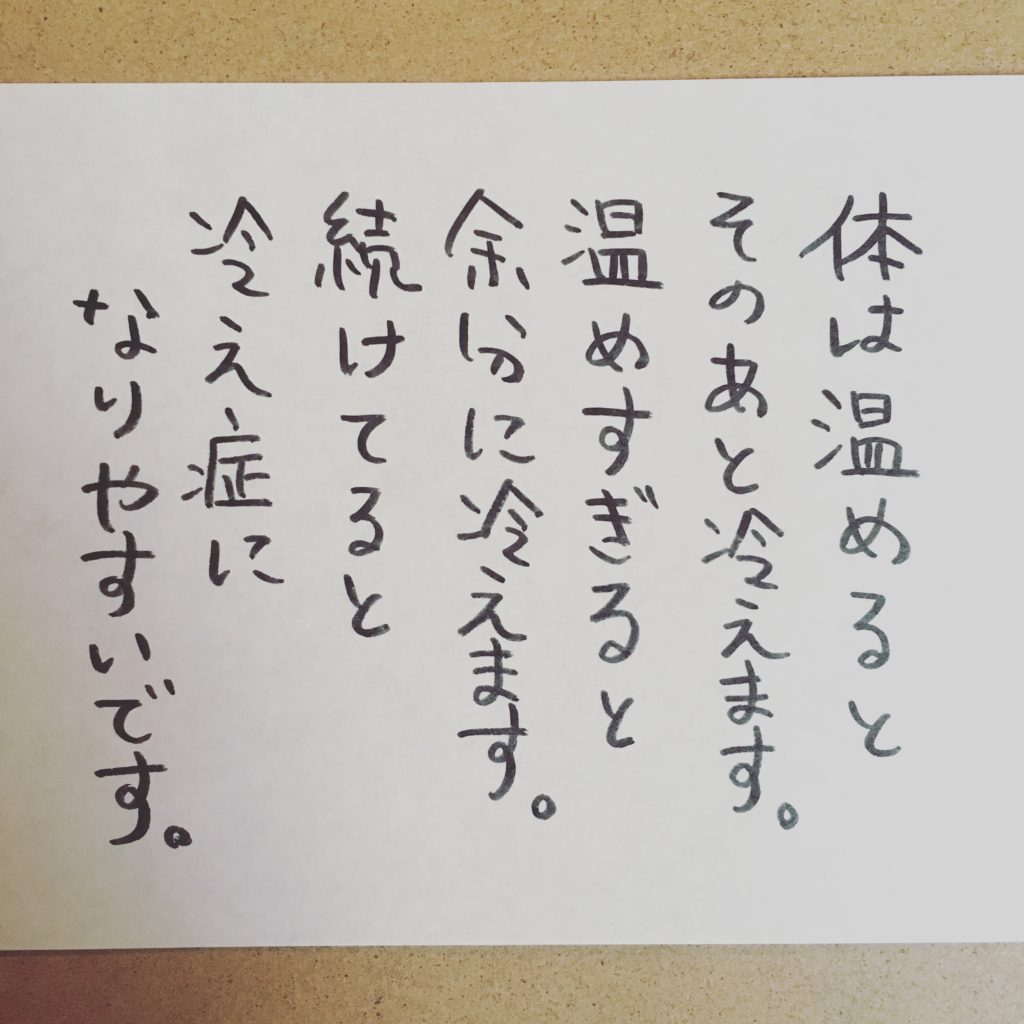 体は温めると
そのあと冷えます。
温めすぎると
余分に冷えます。
続けてると
冷え症に
なりやすいです。